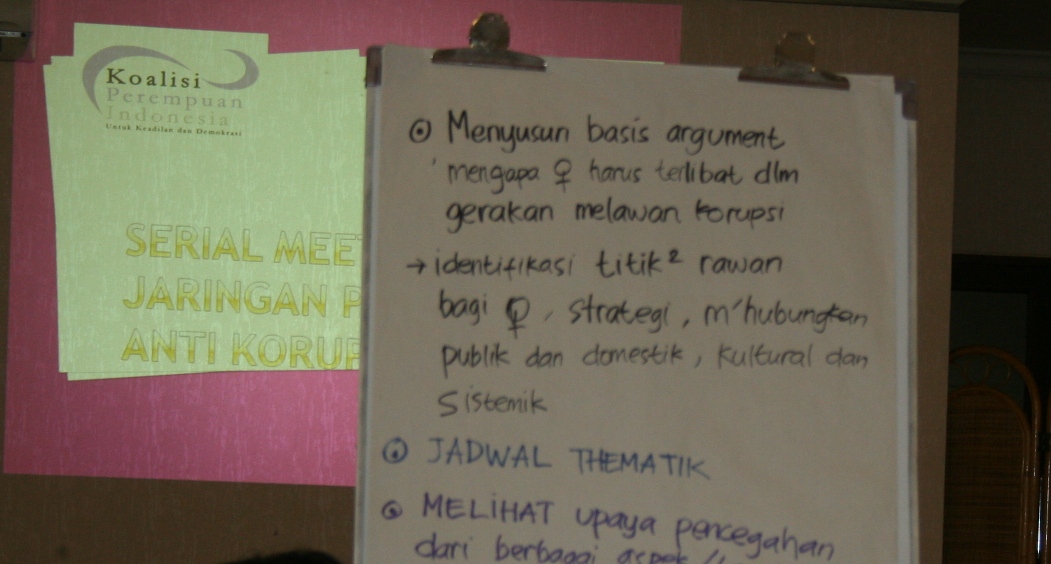 Koalisi
Perempuan
Indonesia
Untuk Keadilan dan Demokrasi
SERIAL MEET
JARINGAN P
ANTI KORUP
⊙ Menyusun basis argument
'mengapa ♀ harus terlibat dlm
gerakan melawan korupsi
→ identifikasi titik² rawan
bagi ♀, strategi, m'hubungkan
publik dan domestik, kultural dan
sistemik
⊙ JADWAL THEMATIK
⊙ MELIHAT upaya pencegahan
dari berbagai aspek //